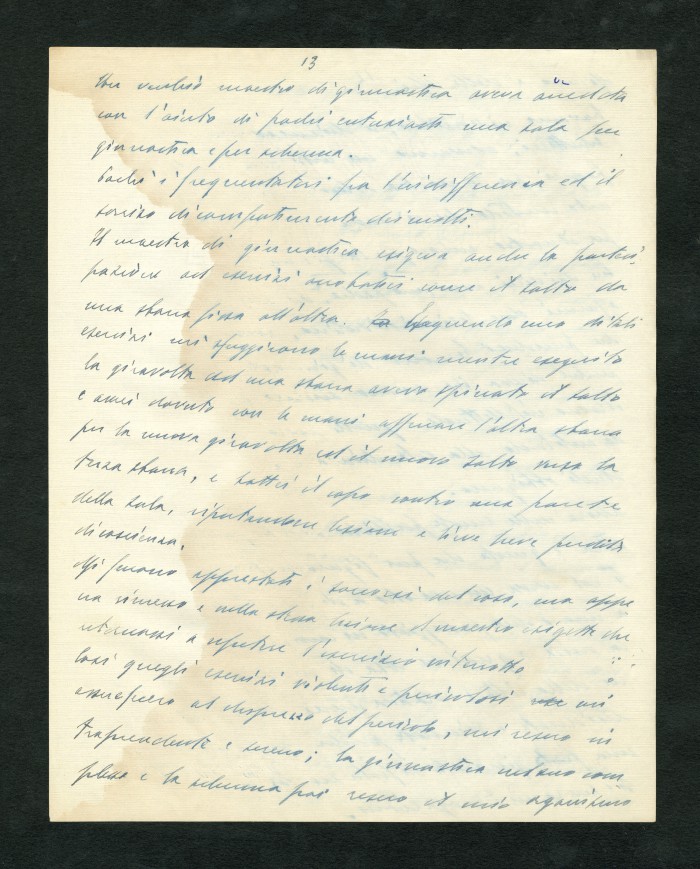 13
Un valese maestro di ginnastica aveva aneddota
con l'aiuto di pochi entusiasti una sala per
ginnastica e per scherma.
Pochi i frequentatori fra l'indifferenza ed il
sorriso di compatimento di molti.
Il maestro di ginnastica esigeva anche la parteci-
pazione ad esercizi acrobatici come il salto da
una sbarra fissa all'altra. Eseguendo uno di tali
esercizi mi sfuggirono le mani mentre eseguito
la giravolta ad una sbarra avevo spiccato il salto
e avrei dovuto con le mani afferrare l'altra sbarra
per la nuova giravolta ed il nuovo salto verso la
terza sbarra, e battei il capo contro una parete
della sala, riportandone lesioni e lieve breve perdita
di coscienza.
Mi furono apprestati i soccorsi del caso, ma appe
na rimesso e nella stessa lezione il maestro esigette che
ritornassi a ripetere l'esercizio interrotto
Così quegli esercizi violenti e pericolosi mi
al disprezzo del pericolo, mi resero in
traprendente e sereno; la ginnastica nel suo com
plesso e la scherma poi resero il mio organismo